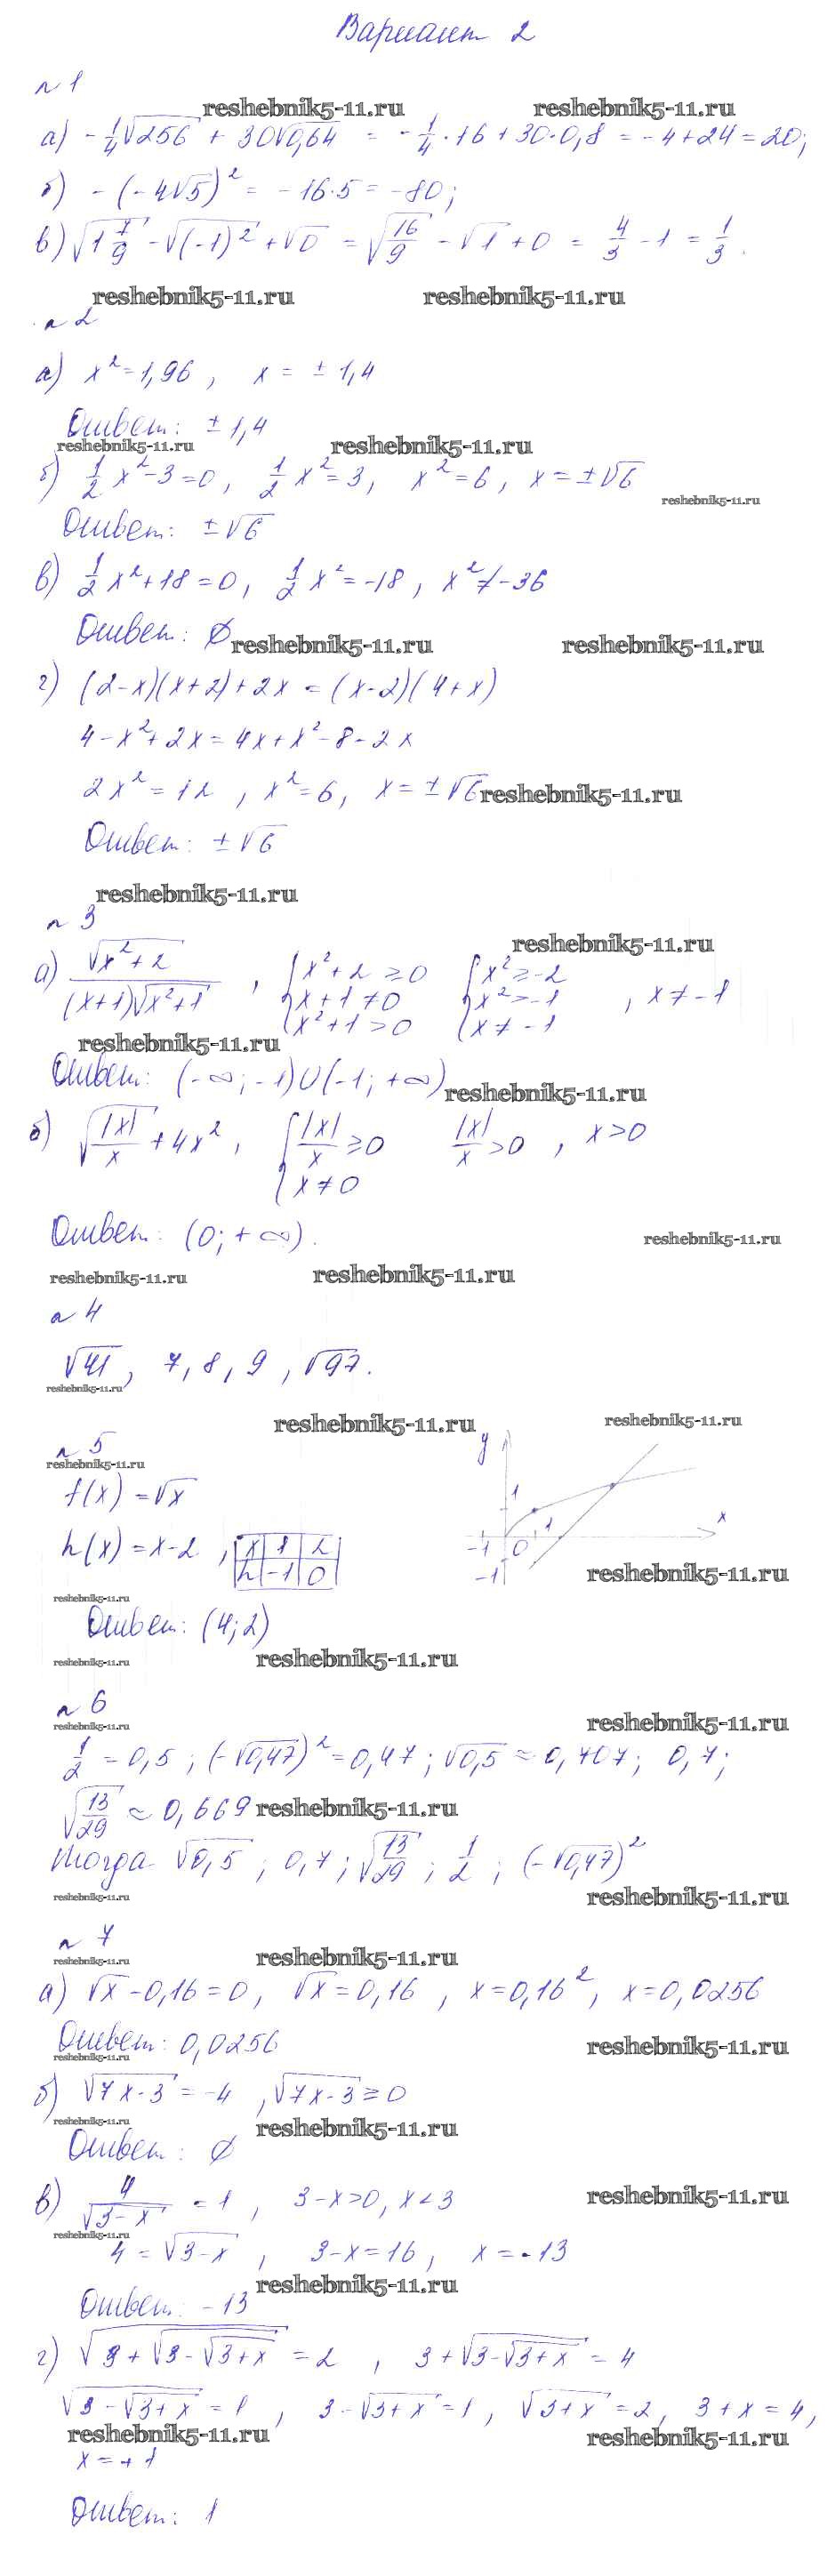 Вариант 2
№ 1
reshebnik5-11.ru reshebnik5-11.ru
а) -1/4√256 + 30√0,64 = -1/4·16 + 30·0,8 = -4+24 = 20;
б) -(-4√5)² = -16·5 = -80;
в) √(1 7/9) - √((-1)²) + √0 = √(16/9) - √1 + 0 = 4/3 - 1 = 1/3.
reshebnik5-11.ru reshebnik5-11.ru
№ 2
а) x² = 1,96, x = ± 1,4
Ответ: ± 1,4
reshebnik5-11.ru reshebnik5-11.ru
б) 1/2 x² - 3 = 0, 1/2 x² = 3, x² = 6, x = ±√6
reshebnik5-11.ru
Ответ: ±√6
в) 1/2 x² + 18 = 0, 1/2 x² = -18, x² ≠ -36
Ответ: ∅ reshebnik5-11.ru reshebnik5-11.ru
г) (2-x)(x+2) + 2x = (x-2)(4+x)
4 - x² + 2x = 4x + x² - 8 - 2x
2x² = 12, x² = 6, x = ±√6 reshebnik5-11.ru
Ответ: ±√6
reshebnik5-11.ru
№ 3
reshebnik5-11.ru
а) √(x²+2) / ((x+1)√(x²+1)), { x²+2 ≥ 0 { x² ≥ -2
{ x+1 ≠ 0 { x² > -1 , x ≠ -1
{ x²+1 > 0 { x ≠ -1
reshebnik5-11.ru
Ответ: (-∞; -1)∪(-1; +∞) reshebnik5-11.ru
б) √(|x|/x) + 4x², { |x|/x ≥ 0 |x|/x > 0, x > 0
{ x ≠ 0
Ответ: (0; +∞).
reshebnik5-11.ru
reshebnik5-11.ru reshebnik5-11.ru
№ 4
√41, 7, 8, 9, √97.
reshebnik5-11.ru
reshebnik5-11.ru reshebnik5-11.ru
№ 5
reshebnik5-11.ru
f(x) = √x
h(x) = x-2, x 1 2
h -1 0
y 1 x -1 0 1 -1
reshebnik5-11.ru
reshebnik5-11.ru
Ответ: (4; 2)
reshebnik5-11.ru reshebnik5-11.ru
№ 6
reshebnik5-11.ru reshebnik5-11.ru
1/2 = 0,5; (-√0,47)² = 0,47; √0,5 ≈ 0,707; 0,7;
√(13/29) ≈ 0,669 reshebnik5-11.ru
Тогда √0,5; 0,7; √(13/29); 1/2; (-√0,47)²
reshebnik5-11.ru reshebnik5-11.ru
№ 7
reshebnik5-11.ru reshebnik5-11.ru
а) √x - 0,16 = 0, √x = 0,16, x = 0,16², x = 0,0256
Ответ: 0,0256
reshebnik5-11.ru reshebnik5-11.ru
б) √(7x-3) = -4, √(7x-3) ≥ 0
reshebnik5-11.ru reshebnik5-11.ru
Ответ: ∅
в) 4/√(3-x) = 1, 3-x>0, x<3
reshebnik5-11.ru
reshebnik5-11.ru
4 = √(3-x), 3-x = 16, x = -13
reshebnik5-11.ru
Ответ: -13
г) √(3+√(3-√(3+x))) = 2, 3+√(3-√(3+x)) = 4
√(3-√(3+x)) = 1, 3-√(3+x) = 1, √(3+x) = 2, 3+x = 4,
reshebnik5-11.ru reshebnik5-11.ru
x = +1
Ответ: 1